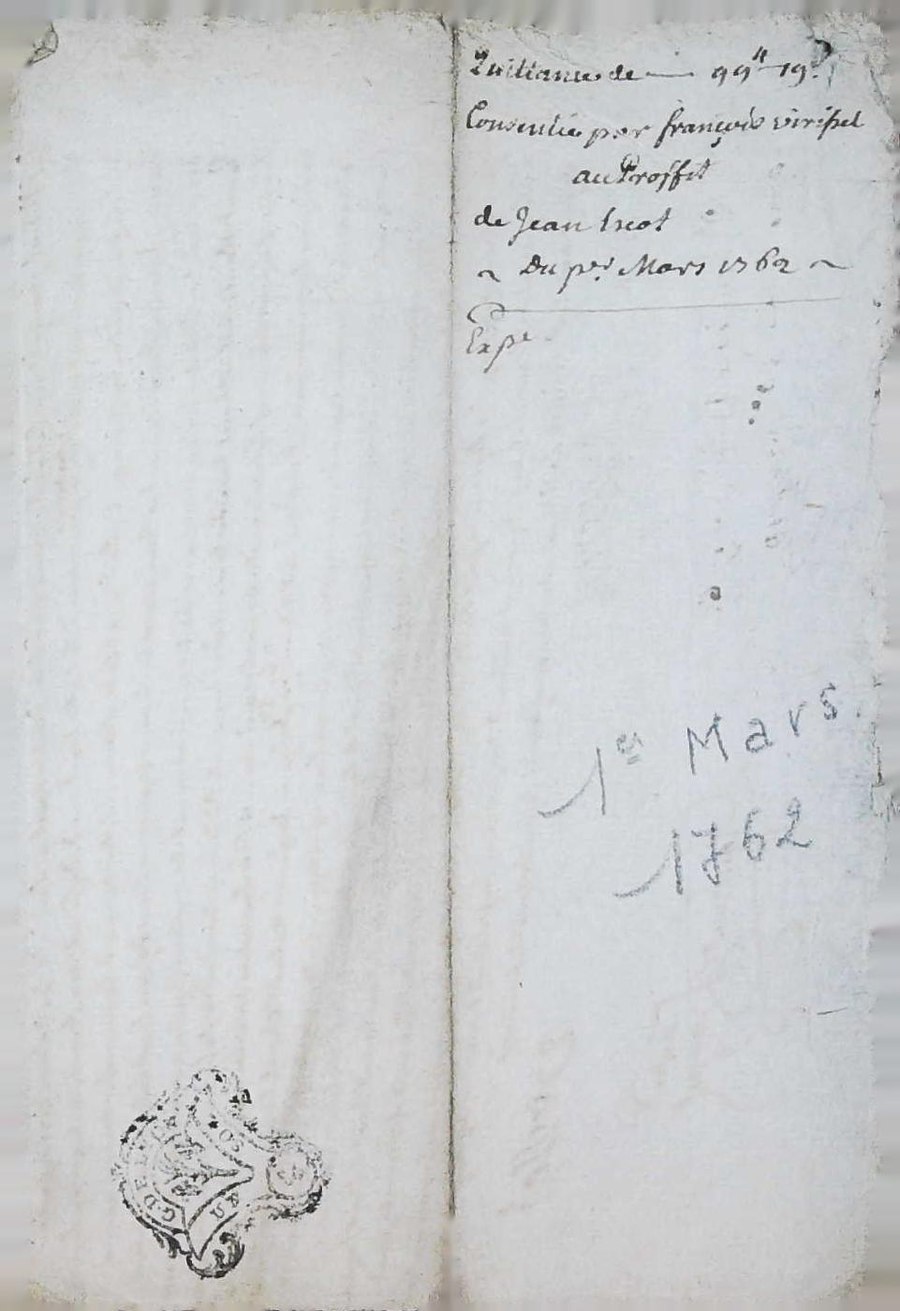 Quittance de — 99# 19s
Consentie par françois virisel
au Proffit
de Jean
~ Du per Mars 1762 ~
Expe
1er Mars
1762
G. DE